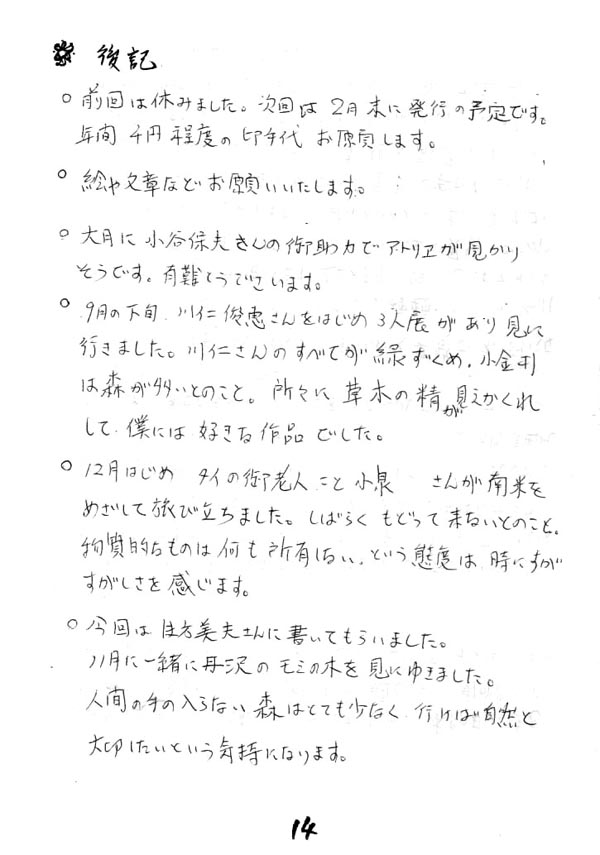 後記
○ 前回は休みました。次回は2月末に発行の予定です。
年間 千円程度の 切手代 お願いします。
○ 絵や文章などお願いいたします。
○ 大月に 小谷保夫さんの御助力で アトリエが見つかり
そうです。有難とうございます。
○ 9月の下旬 川仁俊恵さんをはじめ 3人展があり 見に
行きました。川仁さんのすべてが緑ずくめ。小金井
は森が多いとのこと。所々に 草木の精が見えかくれ
して 僕には 好きな作品でした。
○ 12月はじめ タイの御老人こと小泉 さんが南米を
めざして旅び立ちました。しばらく もどって来ないとのこと。
物質的なものは何も所有しない、という態度は 時にすが
すがしさを感じます。
○ 今回は 住方美夫さんに書いてもらいました。
11月に一緒に丹沢の モミの木を見にゆきました。
人間の手の入らない 森はとても少なく 行けば自然と
したいという気持になります。
14